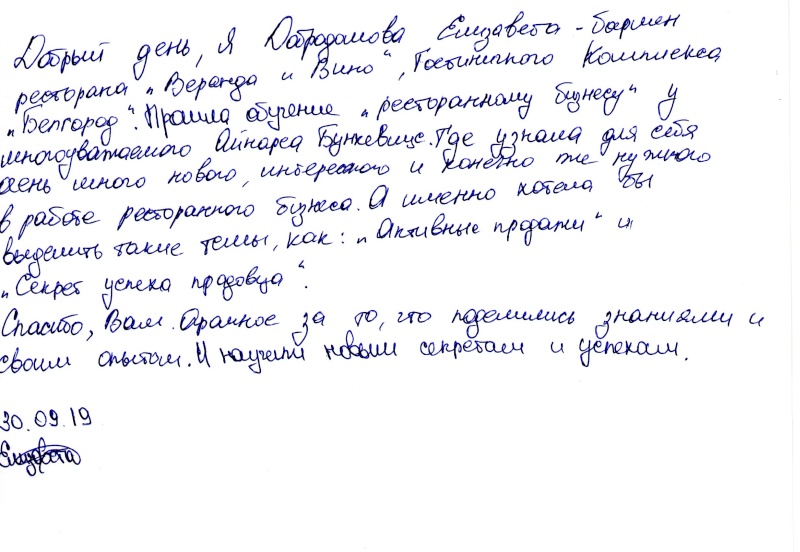 Добрый день, я Доброданова Елизавета - бармен
ресторана „Веранда и Вино“, Гостиничного Комплекса
„Белгород“. Прошла обучение „ресторанному бизнесу“ у
многоуважаемого Айнарса Бункевице. Где узнала для себя
очень много нового, интересного и конечно же нужного
в работе ресторанного бизнеса. А именно хотела бы
выделить такие темы, как: „Активные продажи“ и
„Секрет успеха продавца“.
Спасибо, Вам огромное за то, что поделились знаниями и
своим опытом. И научили новым секретам и успехам.
30.09.19
Елизавета